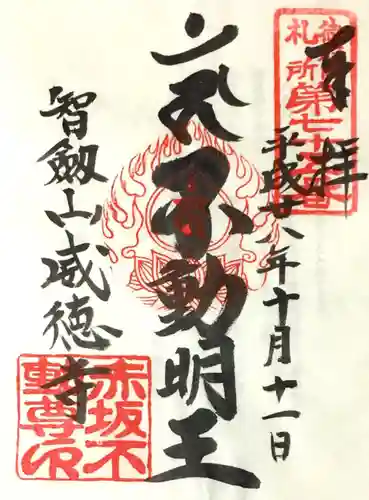 奉拝
平成廿八年十月十一日
札所第七十五番
不動明王
智劔山威徳寺
赤坂不
動尊印